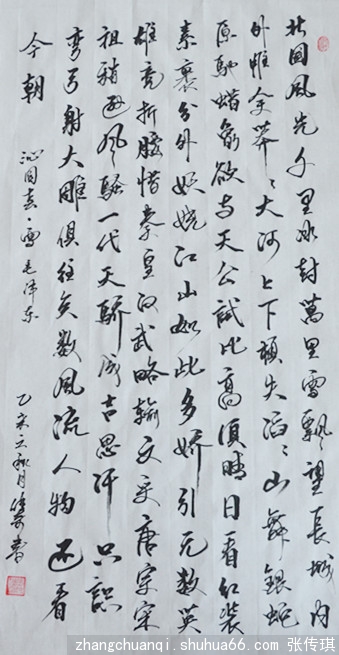 北国风光千里冰封萬里雪飘望長城内
外惟余莽〻大河上下顿失滔〻山舞銀蛇
原馳蜡象欲与天公试比高須晴日看红装
素裹分外妖娆江山如此多娇引无数英
雄竞折腰惜秦皇汉武略输文采唐宗宋
祖稍逊风骚一代天骄成吉思汗只識
弯弓射大雕俱往矣数风流人物还看
今朝
沁园春·雪毛泽东
乙未 秋月 书
zhangchuanqi.shuhua66.com 张传琪